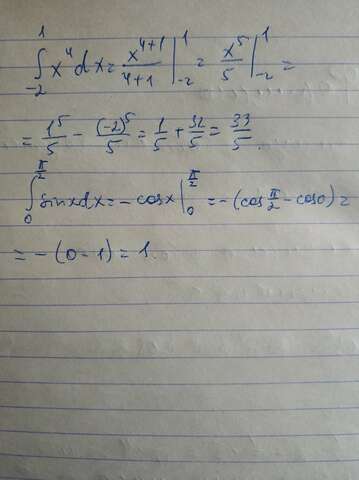 ∫₋₂¹ x⁴dx = x⁴⁺¹/4+1 |₋₂¹ = x⁵/5 |₋₂¹ =
= 1⁵/5 - (-2)⁵/5 = 1/5 + 32/5 = 33/5.
∫₀^(π/2) sinxdx = - cosx |₀^(π/2) = -(cos π/2 - cos0) =
= -(0-1) = 1.